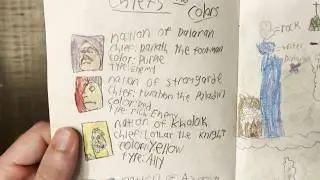 chiefs
colors
nation of Dalanan
chief: Danath the footman
color: Purple
Type: Enemy
nation of stromgarde
chief: Turalyon the Paladin
color: Red
Type: Enemy
nation of Khalok
chief: Lothar the Knight
color: Yellow
Type: Ally
nation of
=rock